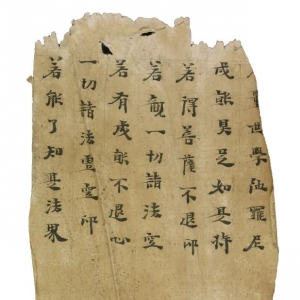 量世學陁羅尼
成就具足如是
若得菩薩不退印
若觀一切諸法空
若有成就不退心
一切諸法虛空印
若能了知是法界